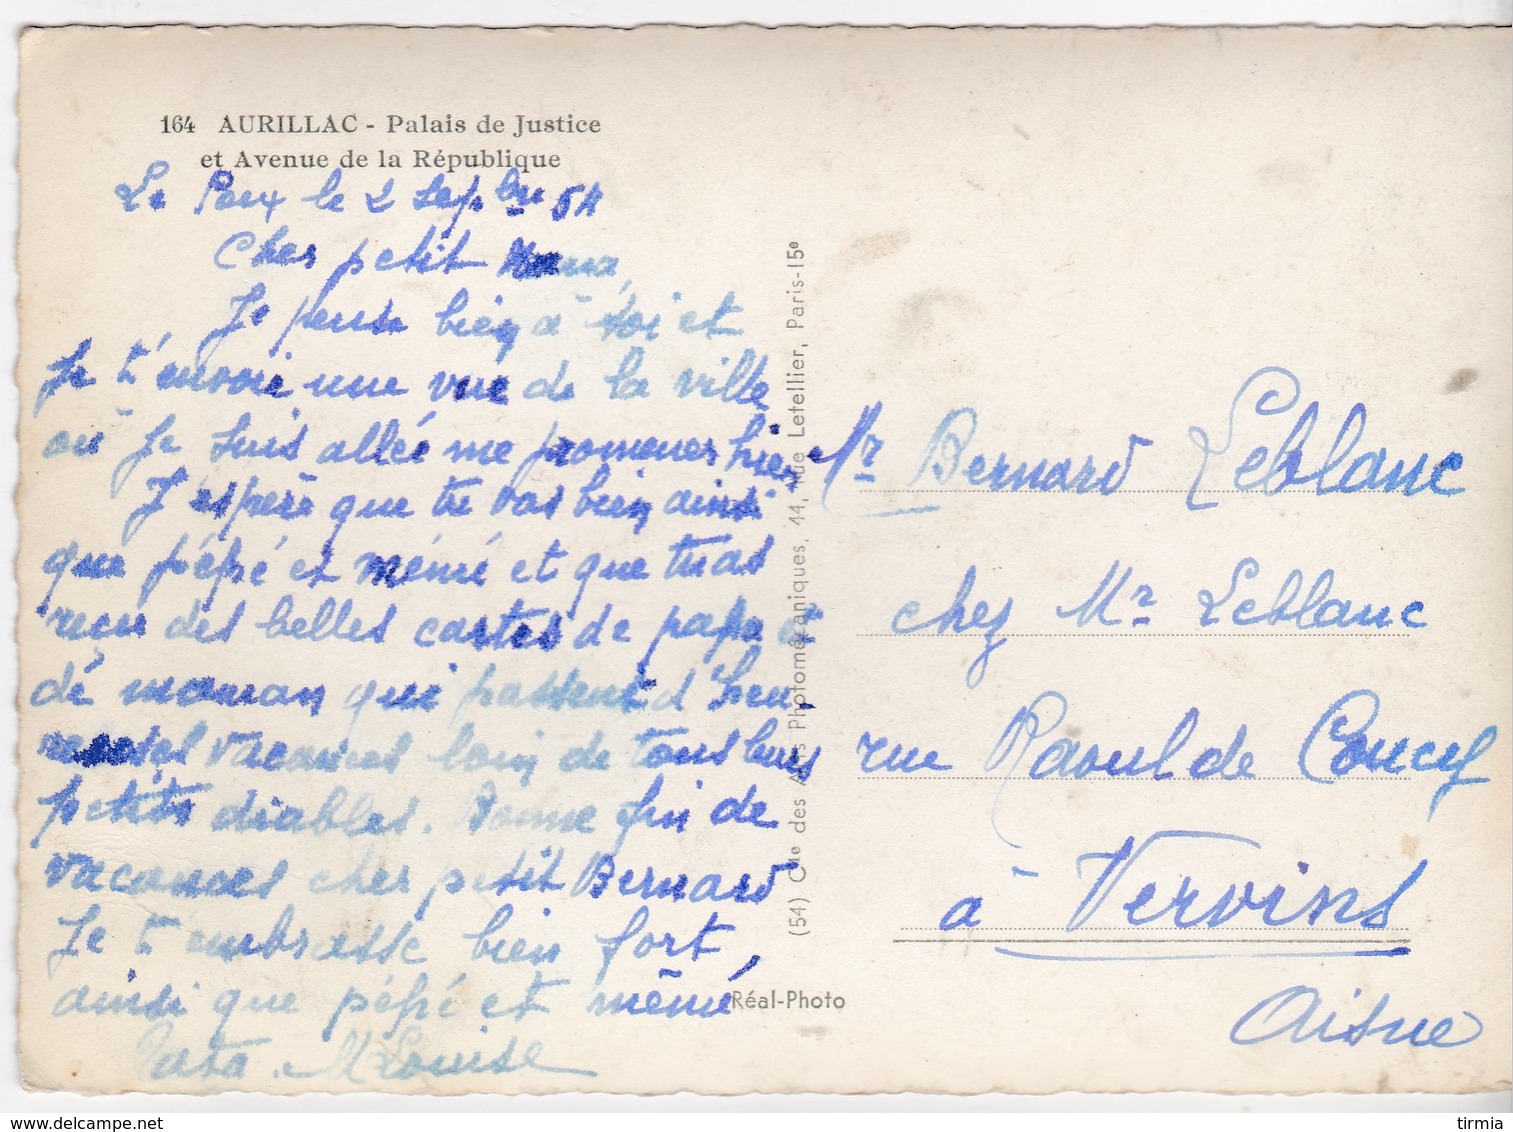 164 AURILLAC - Palais de Justice
et Avenue de la République
le 2 Sepbre 54
Cher petit
Je pense bien à toi et
Je t'envoie une vue de la ville
où je suis allée me promener hier
J'espère que tu vas bien ainsi
que pépé et mémé et que tu as
reçu des belles cartes de papa et
de maman qui passent d'heu-
reuses vacances loin de tous leurs
petits diables. Bonne fin de
vacances cher petit Bernard
Je t'embrasse bien fort,
ainsi que pépé et mémé
Tata M Louise
(54) Cie des Arts Photomécaniques, 44, rue Letellier, Paris-15e
Réal-Photo
Mr Bernard Leblanc
chez Mr Leblanc
rue Raoul de Coucy
à Vervins
Aisne
delcampe.net
tirmia